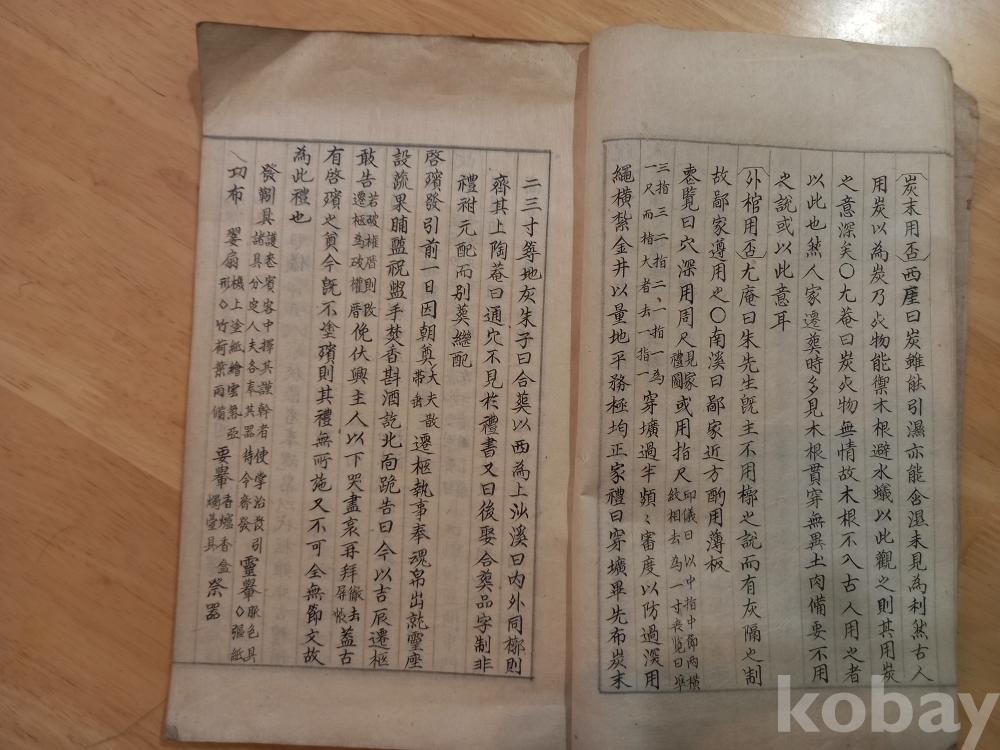 炭末用否西厓曰炭雖能引濕亦能含濕未見為利然古人
用炭以為炭乃死物能禦木根避水蟻以此觀之則其用炭
之意深矣○尤菴曰炭死物無情故木根不入古人用之者
以此也然人家遷葬時多見木根貫穿無異土肉備要不用
之說或以此意耳
外棺用否尤庵曰朱先生旣主不用槨之說而有灰隔之制
故鄙家遵用之○南溪曰鄙家近方酌用薄板
要覽曰穴深用周尺見家禮圖或用指尺卽儀曰以中指中節兩橫紋相去為一寸喪覽曰準
三指三二指二、一指一為一尺而楷大者去一指一穿壙過半頻〻審度以防過深用
繩橫紮金井以量地平務極均正家禮曰穿壙畢先布炭末
二三寸等地灰朱子曰合葬以西為上汕溪曰內外同槨則
齊其上陶菴曰通穴不見於禮書又曰後娶合葬品字制非
禮祔元配而別葬繼配
啓殯發引前一日因朝奠大夫散帶垂遷柩執事奉魂帛出就靈座
設蔬果脯醢祝盥手焚香斟酒訖北面跪告曰今以吉辰遷柩
敢告若破權厝則改遷柩為破權厝俛伏興主人以下哭盡哀再拜徹去屏帳蓋古
有啓殯之奠今旣不塗殯則其禮無所施又不可全無節文故
為此禮也
發靷具護喪賓客中擇其謹幹者使掌治發引諸具分定人夫各奉其器待令齊發靈轝◇張紙
功布 翣扇 要轝香爐香盒燭臺具祭器
kobay